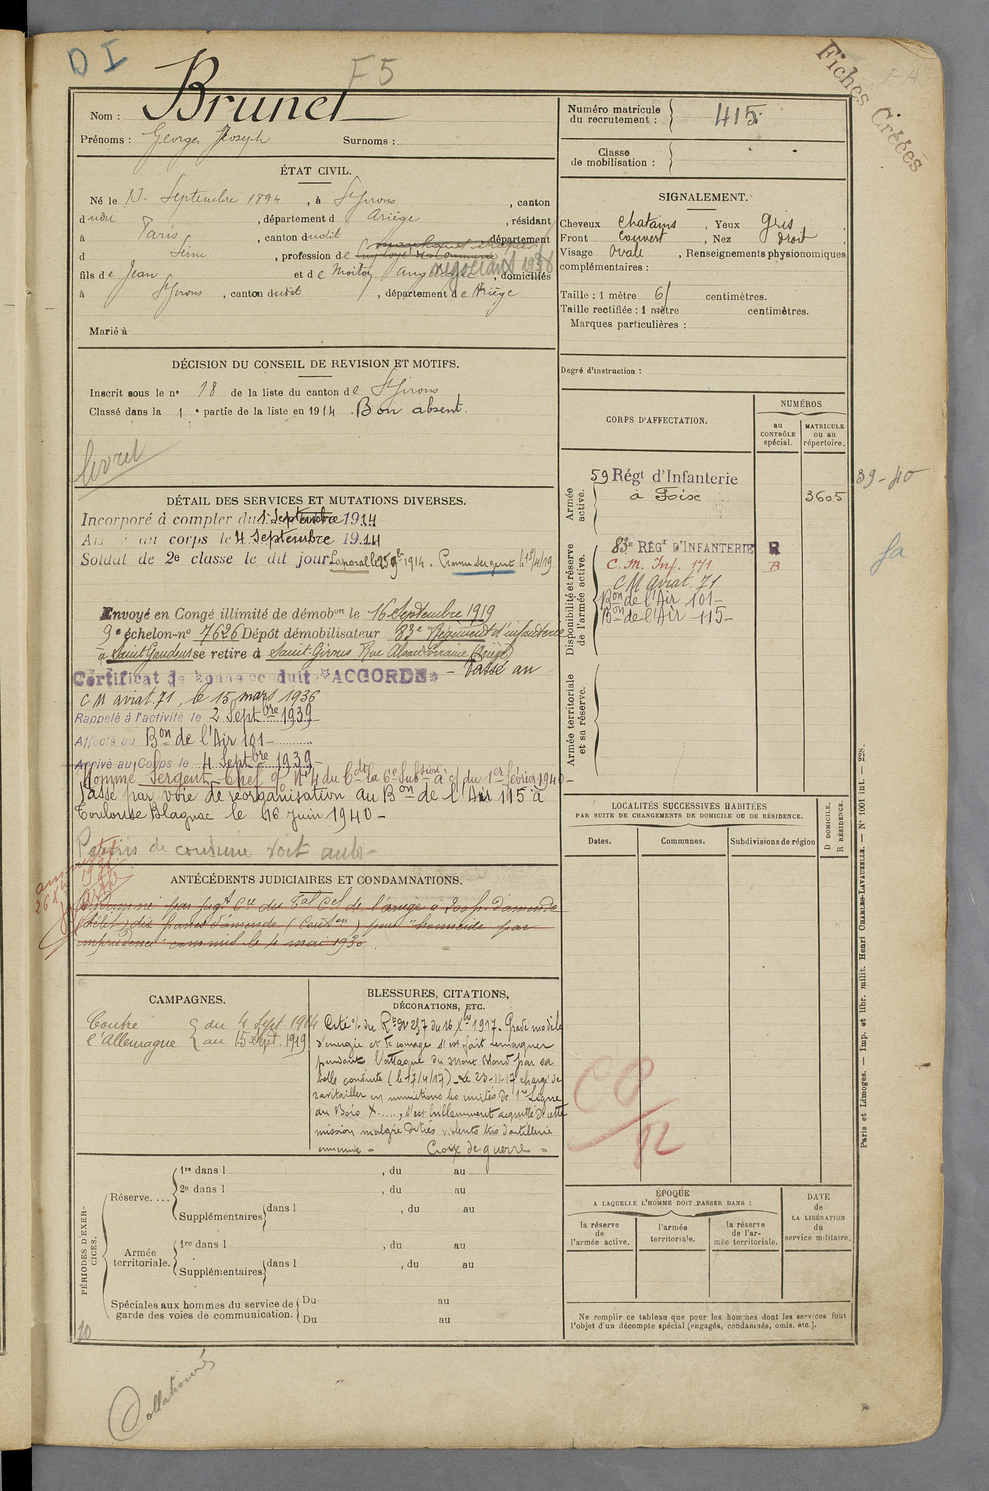 D I
F5
Fiches Créées
Nom : Brunet
Prénoms : Georges Joseph Surnoms :
ÉTAT CIVIL.
Né le 10 Septembre 1894, à St Girons, canton
dudit, département d Ariège, résidant
à Paris, canton dudit département
d Seine, profession de négociant 1938
fils de Jean et de Angélique, domiciliés
à St Girons, canton dudit, département de Ariège
Marié à
DÉCISION DU CONSEIL DE REVISION ET MOTIFS.
Inscrit sous le n° 18 de la liste du canton de St Girons
Classé dans la 1e partie de la liste en 1914. Bon absent.
livret
DÉTAIL DES SERVICES ET MUTATIONS DIVERSES.
Incorporé à compter du 1 septembre 1914
Arrivé au corps le 4 Septembre 1914
Soldat de 2e classe le dit jour Caporal le 25 9bre 1914.
Envoyé en Congé illimité de démobon le 16 Septembre 1919
9e échelon-n° 7626 Dépôt démobilisateur 83e Régiment d'infanterie
à Saint Gaudens se retire à Saint-Girons Rue Alsace Lorraine (Ariège)
Certificat de bonne conduite "ACCORDÉ" - Passé au
C M aviat. 71, le 15 mars 1936
Rappelé à l'activité le 2 Septbre 1939
Affecté au Bon de l'Air 101
Arrivé au Corps le 4 Septbre 1939
Nommé Sergent-Chef
du 1er février 1940
Passé par voie de réorganisation au Bon de l'Air 115 à
Toulouse Blagnac le 16 juin 1940 -
Permis de conduire
ANTÉCÉDENTS JUDICIAIRES ET CONDAMNATIONS.
Condamné par jugt Cel du de l'Ariège à 200 f. d'amende
pour "homicide par
imprudence" commis le 4 mai 1930
CAMPAGNES.
Contre du 4 Sept. 1914
l'Allemagne au 15 Sept. 1919
BLESSURES, CITATIONS,
DÉCORATIONS, ETC.
Cité o/ du Rt n° 257 du 16 Xbre 1917. Gradé modèle
d'énergie et de courage s'est fait remarquer
pendant l'attaque du mont Blond par sa
belle conduite (le 17/4/17) - Le 23-11-17 chargé de
ravitailler en munitions les unités de 1re Ligne
au Bois X....., s'est brillamment acquitté de cette
mission malgré de très violents tirs d'artillerie
ennemie = Croix de guerre =
PÉRIODES D'EXERCICES.
Réserve....
1re dans l , du au
2e dans l , du au
Supplémentaires dans l , du au
Armée territoriale.
1re dans l , du au
Supplémentaires dans l , du au
Spéciales aux hommes du service de garde des voies de communication.
Du au
Du au
10
Collationné
Numéro matricule du recrutement : 415
Classe de mobilisation :
SIGNALEMENT.
Cheveux chatains, Yeux gris
Front couvert, Nez droit,
Visage ovale, Renseignements physionomiques
complémentaires :
Taille : 1 mètre 61 centimètres.
Taille rectifiée : 1 mètre centimètres.
Marques particulières :
Degré d'instruction :
CORPS D'AFFECTATION.
NUMÉROS
au CONTRÔLE spécial.
MATRICULE ou au répertoire.
Armée active.
59 Régt d'Infanterie
à Foix
3605
39-40
Disponibilité et réserve de l'armée active.
83e RÉGt D'INFANTERIE R
C. M. Inf. 171 B
C M Aviat. 71
Bon de l'Air 101-
Bon de l'Air 115-
Armée territoriale et sa réserve.
LOCALITÉS SUCCESSIVES HABITÉES
PAR SUITE DE CHANGEMENTS DE DOMICILE OU DE RÉSIDENCE.
Dates.
Communes.
Subdivisions de région
D DOMICILE.
R RÉSIDENCE.
ÉPOQUE
A LAQUELLE L'HOMME DOIT PASSER DANS :
la réserve de l'armée active.
l'armée territoriale.
la réserve de l'armée territoriale.
DATE de LA LIBÉRATION du service militaire.
Ne remplir ce tableau que pour les hommes dont les services font
l'objet d'un décompte spécial (engagés, condamnés, omis, etc.).
Paris et Limoges. — Imp. et libr. milit. Henri CHARLES-LAVAUZELLE. — N° 1001 int. — 228.